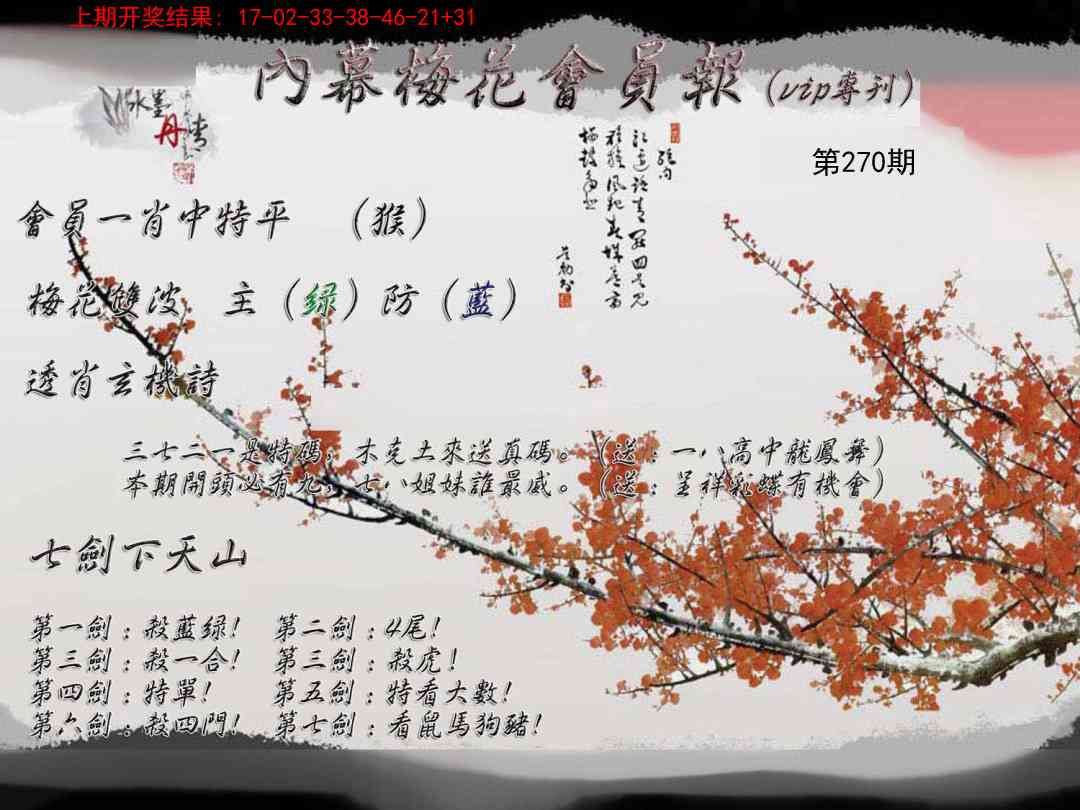 上期开奖结果: 17-02-33-38-46-21+31
內幕梅花會員報(vip專刊)
水墨
丹青
第270期
會員一肖中特平 (猴)
梅花雙波 主(绿)防(藍)
透肖玄機詩
三七二一是特碼，木克土來送真碼。(送:一八高中龍鳳舞)
本期開頭必有九，七八姐妹誰最威。(送:呈祥彩蝶有機會)
七劍下天山
第一劍:殺藍绿! 第二劍:4尾!
第三劍:殺一合! 第三劍:殺虎!
第四劍:特單! 第五劍:特看大數!
第六劍:殺四門! 第七劍:看鼠馬狗豬!